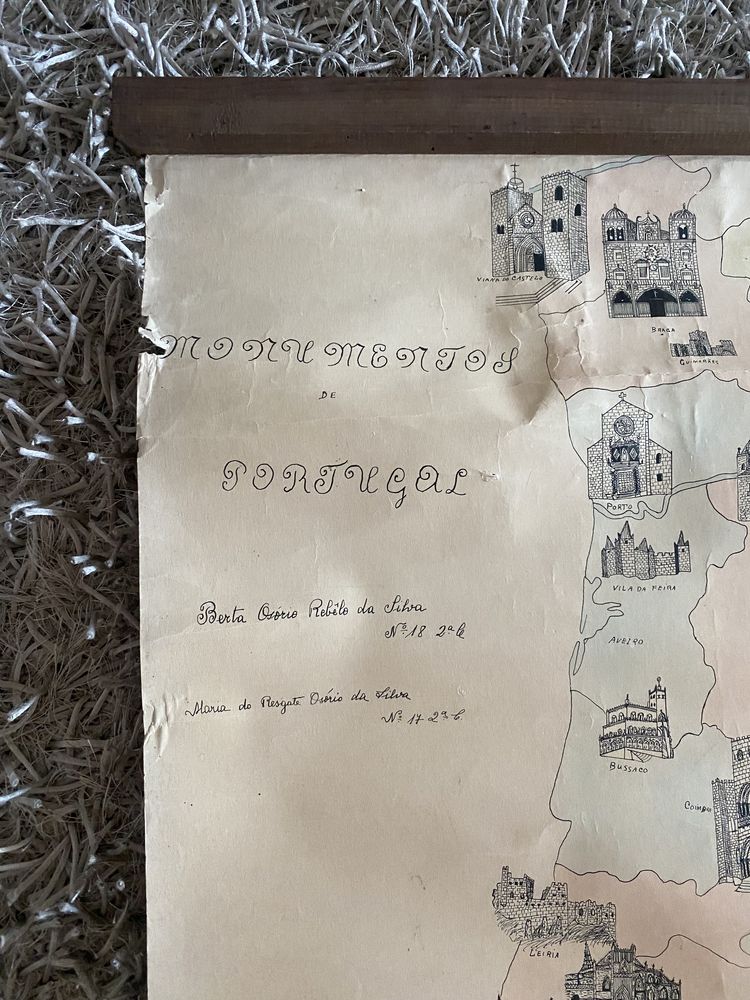 MONUMENTOS
DE
PORTUGAL
Berta Osório Rebêlo da Silva
Nº 18 2ª C
Maria do Resgate Osório da Silva
Nº 17 2ª C.
VIANA DO CASTELO
BRAGA
GUIMARÃES
PORTO
VILA DA FEIRA
AVEIRO
BUSSACO
COIMBRA
LEIRIA